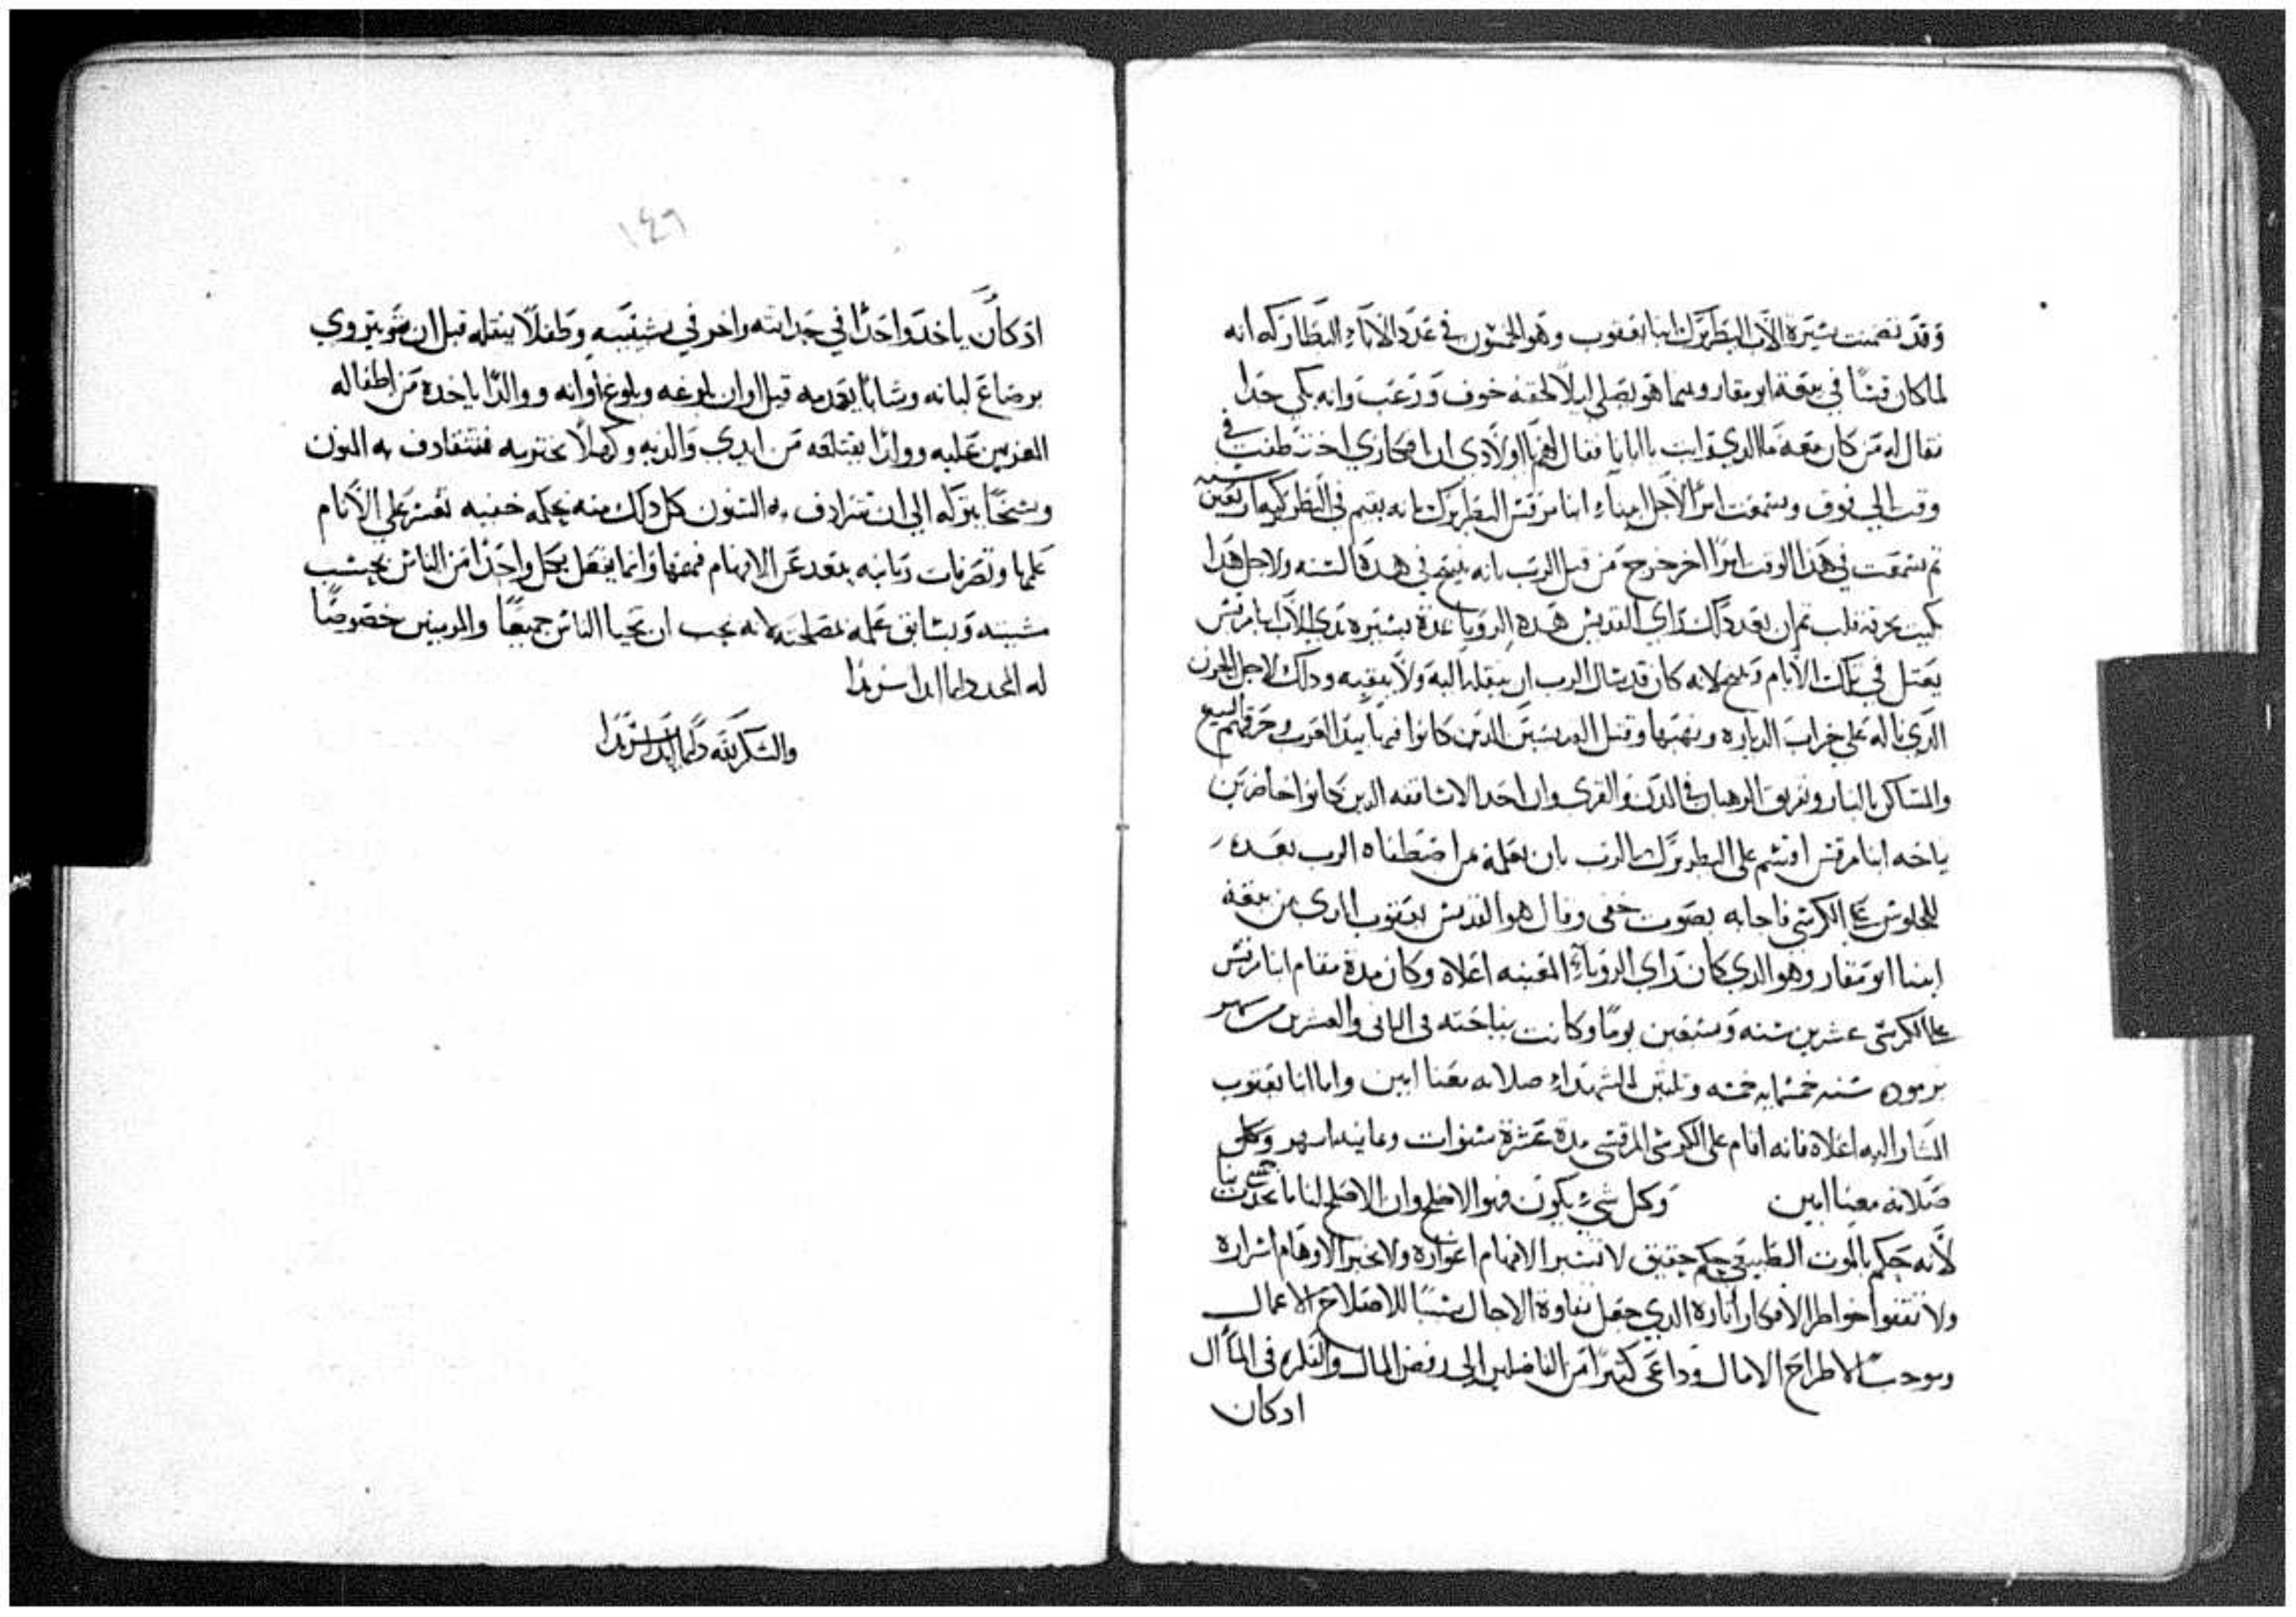 وقد تضمنت سيرة الاب البطريرك انبا يعقوب وهو الخمسون في عدد الاباء البطاركه انه
لما كان قسا في بيعة ابو مقار وبينما هو يصلي ليلا لحقه خوف ورعب وانه بكي جدا
فقال له من كان معه ما الدي رايت يا ابانا فقال لهم يا اولادي ان افكاري اختطفت في
وقت الي فوق وسمعت امرا لاجل ابينا انبا مرقس البطريرك بانه يقيم في البطركيه اربعين سنه
تم سمعت في هدا الوقت امرا اخر خرج من قبل الرب بانه يتنيح في هده السنه ولاجل هدا
بكيت بحرقة قلب تم ان بعد داك راي القديس هده الرويا عدة يسيره بدي الاب انبا مرقس
يعتل في تلك الايام وتنيح لانه كان قد سال الرب ان ينقله اليه ولا يبقيه ودلك لاجل الحزن
الدي ناله علي خراب الدياره ونهبها وقتل القديسين الدين كانوا فيها بيد العرب وحرقهم البيع
والمساكن بالنار وتفريق الرهبان في المدن والقرى وان احد الاساقفه الدين كانوا حاضرين
ياحه انبا مرقس اقسم على البطريرك بالرب بان يعلمه من اصطفاه الرب بعده
للجلوس على الكرسي فاجابه بصوت خفي وقال هو القديس يعقوب الدي من بيعة
ابينا ابو مقار وهو الدي كان راي الرويا المعينه اعلاه وكان مدة مقام انبا مرقس
على الكرسي عشرين سنه وسبعين يوما وكانت نياحته في الثاني والعشرين من شهر
برموده سنه خمسمايه خمسه وتلتين للشهداء صلاته معنا امين واما انبا يعقوب
المشار اليه اعلاه فانه اقام على الكرسي المرقسي مدة عشرة سنوات وتمانيه اشهر
صلاته معنا امين وكل شيء يكون فهو الاصلح وان الاصلح لنا ما يحدث
لانه حكم بالموت الطبيعي حكم حقيق لا تسبر الافهام اغواره ولا تخبر الاوهام اسراره
ولا تقتفوا خواطر الافكار اثاره الدي جعل تفاوة الاجال سببا للاصلاح الاعمال
وموجبا لاطراح الامال وداعي كثيرا من الفاضلين الي رفض المال والفكره في المآل
ادكان
١٤٩
ادكان ياخد واحدا في حداثته واخر في شيبته وطفلا ينقله قبل ان يرتوي
برضاع لبانه وشابا يعدمه قبل اوان بلوغه وبلوغ اوانه ووالدا ياخده من اطفاله
العزيزين عليه وولدا يقتلعه من ايدي والديه وكهلا تخترمه فتتقادف به المنون
وشيخا يتركه الي ان تترادف به السنون كل دلك منه بحكمه خفيه تعسر علي الانام
علمها وتصرفات ربانيه يبعد عن الافهام فهمها وانما يفعل بكل واحدا من الناس بحسب
مشيته وبسابق علمه لمصلحته لانه يحب ان يحيا الناس جميعا والمومنين خصوصا
له المجد دايما ابدا سرمدا
والشكر لله دايما ابدا سرمدا